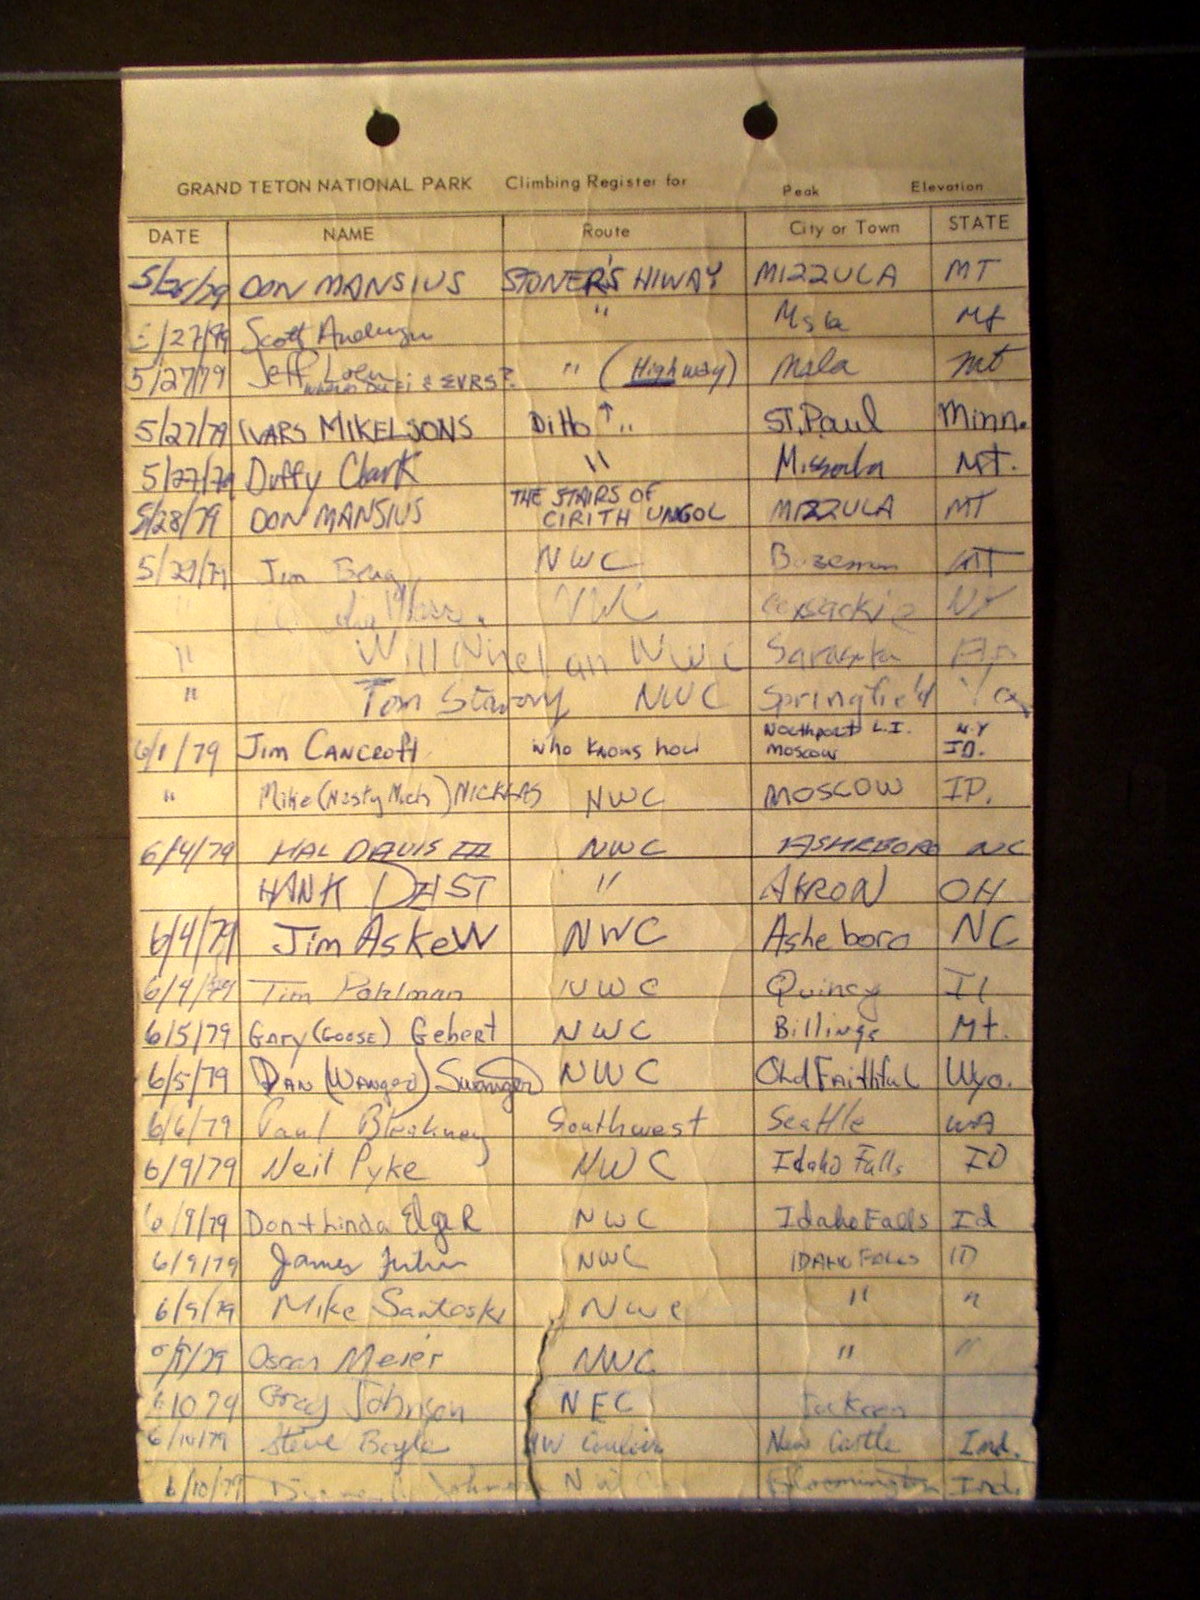 GRAND TETON NATIONAL PARK Climbing Register for Peak Elevation
DATE NAME Route City or Town STATE
5/26/79 DON MANSIUS STONER'S HIWAY MIZZULA MT
5/27/79 Scott Anderson " Msla Mt
5/27/79 Jeff " (Highway) Msla mt
5/27/79 IVARS MIKELSONS Ditto ↑ .. ST. Paul Minn.
5/27/79 Duffy Clark " Missoula MT.
5/28/79 DON MANSIUS THE STAIRS OF CIRITH UNGOL MIZZULA MT
5/29/79 Jim NWC Bozeman MT
NWC Coxsackie NY
" Will NWC Sarasota
" Tom NWC Springfield
6/1/79 Jim Cancroft who knows how Northport L.I. N.Y
Moscow ID.
" Mike (Nasty Nick) NICKLAS NWC MOSCOW ID.
6/4/79 HAL DAVIS III NWC ASHEBORO NC
HANK " AKRON OH
6/4/79 Jim Askew NWC Asheboro NC
6/4/79 Tim Pohlman NWC Quincy Il
6/5/79 Gary (Goose) Gebert NWC Billings Mt.
6/5/79 DAN (Wanger) Swanger NWC Old Faithful Wyo.
6/6/79 Paul Blakney Southwest Seattle WA
6/9/79 Neil Pyke NWC Idaho Falls ID
6/9/79 Don + Linda Elger NWC Idaho Falls Id
6/9/79 James NWC IDAHO FALLS ID
6/9/79 Mike Santoski NWC " "
6/9/79 Oscar Meier NWC " "
6 10 79 Greg Johnson NEC Jackson
6/10/79 Steve Boyle NW Couloir New Castle Ind.
6/10/79 NW Bloomington Ind.